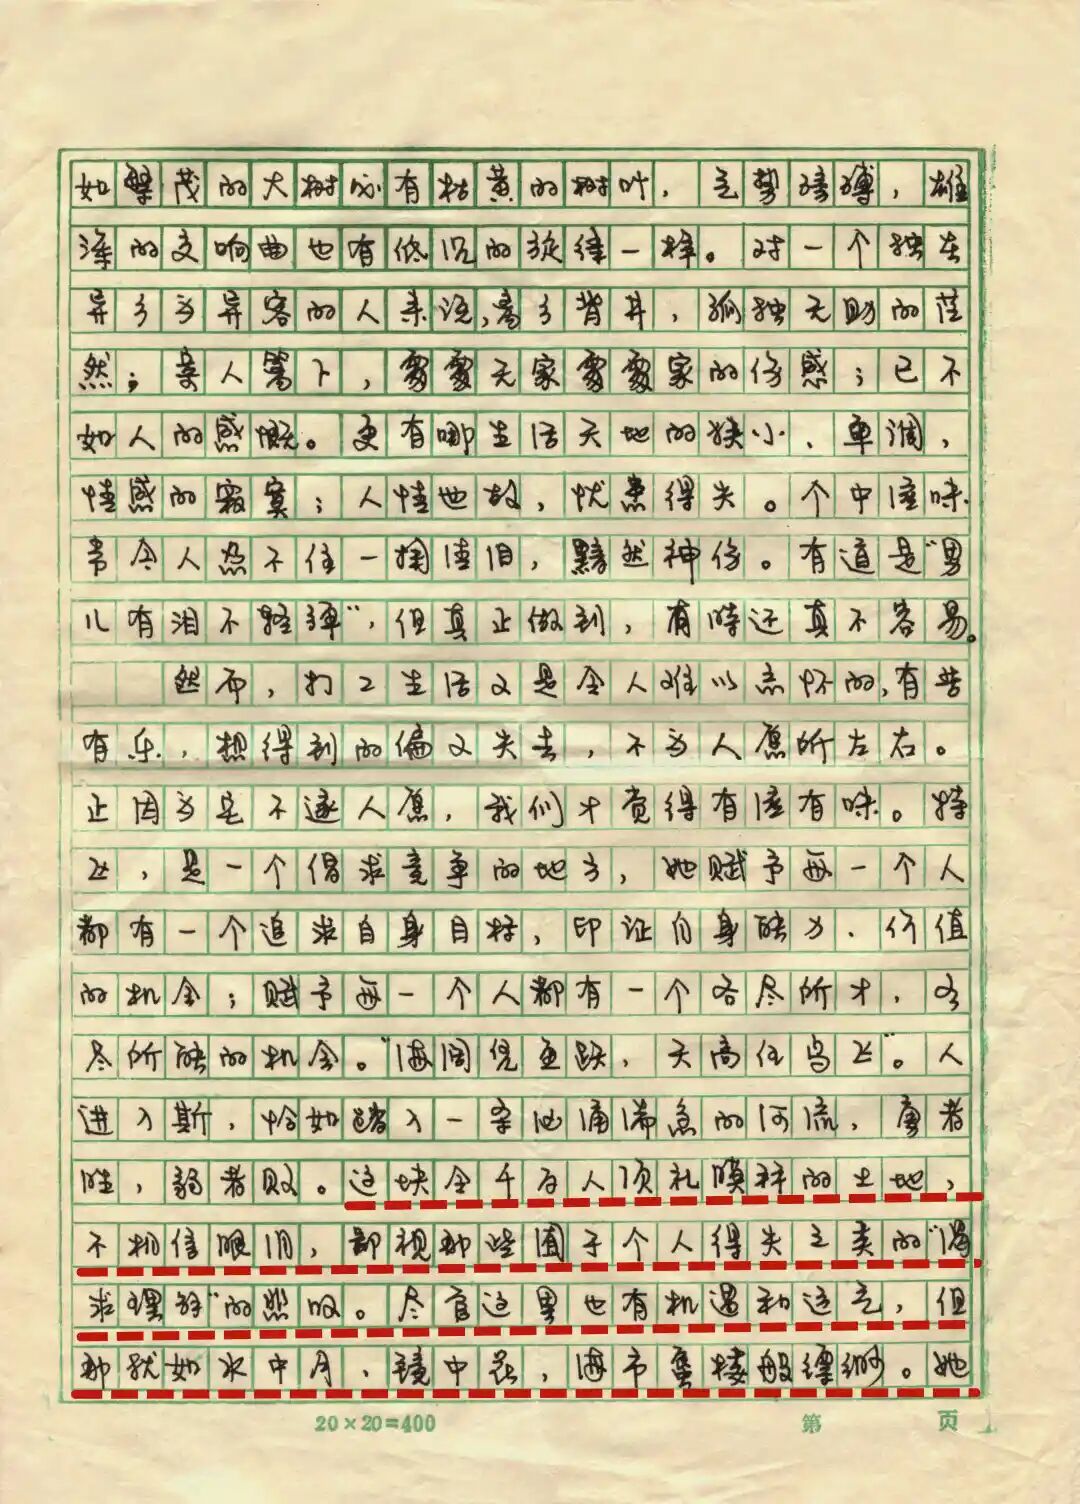 如繁茂的大树必有枯黄的树叶，气势磅礴，雄
浑的交响曲也有低沉的旋律一样。对一个独在
异乡为异客的人来说，离乡背井，孤独无助的茫
然；亲人篱下，有家的伤感；已不
如人的感慨。更有哪生活天地的狭小、单调，
情感的寂寞；人情世故，忧患得失。个中滋味
常令人忍不住一掬清泪，黯然神伤。有道是“男
儿有泪不轻弹”，但真正做到，有时还真不容易。
然而，打工生活又是令人难以忘怀的，有苦
有乐，想得到的偏又失去，不为人愿所左右。
正因为是不遂人愿，我们才觉得有滋有味。特
区，是一个倡求竞争的地方，她赋予每一个人
都有一个追求自身目标，印证自身能力、价值
的机会；赋予每一个人都有一个各尽所才，各
尽所能的机会。“海阔凭鱼跃，天高任鸟飞”。人
进入斯，恰如踏入一条汹涌湍急的河流，勇者
胜，弱者败。这块令千百人顶礼膜拜的土地，
不相信眼泪，鄙视那些囿于个人得失之类的“渴
求理解”的悲叹。尽管这里也有机遇和运气，但
那就如水中月，镜中花，海市蜃楼般缥缈。她
20×20=400
第 页